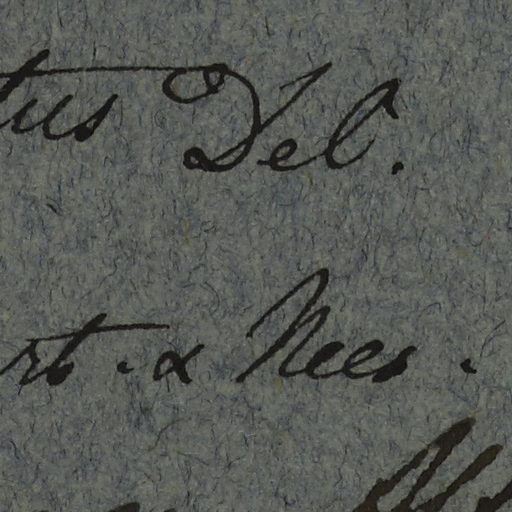 tus Del.
rt. & Nees.